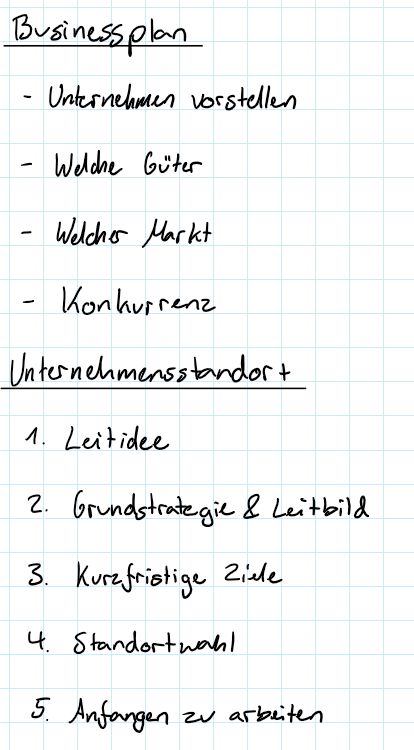 Businessplan
- Unternehmen vorstellen
- Welche Güter
- Welcher Markt
- Konkurrenz
Unternehmensstandort
1. Leitidee
2. Grundstrategie & Leitbild
3. Kurzfristige Ziele
4. Standortwahl
5. Anfangen zu arbeiten